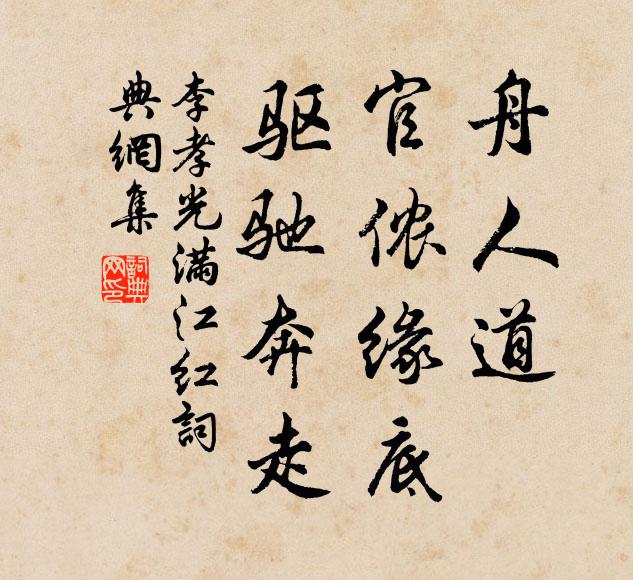 舟人道
官侬缘底
驱驰奔走
李孝光满江红詞
典網集
詞典網印